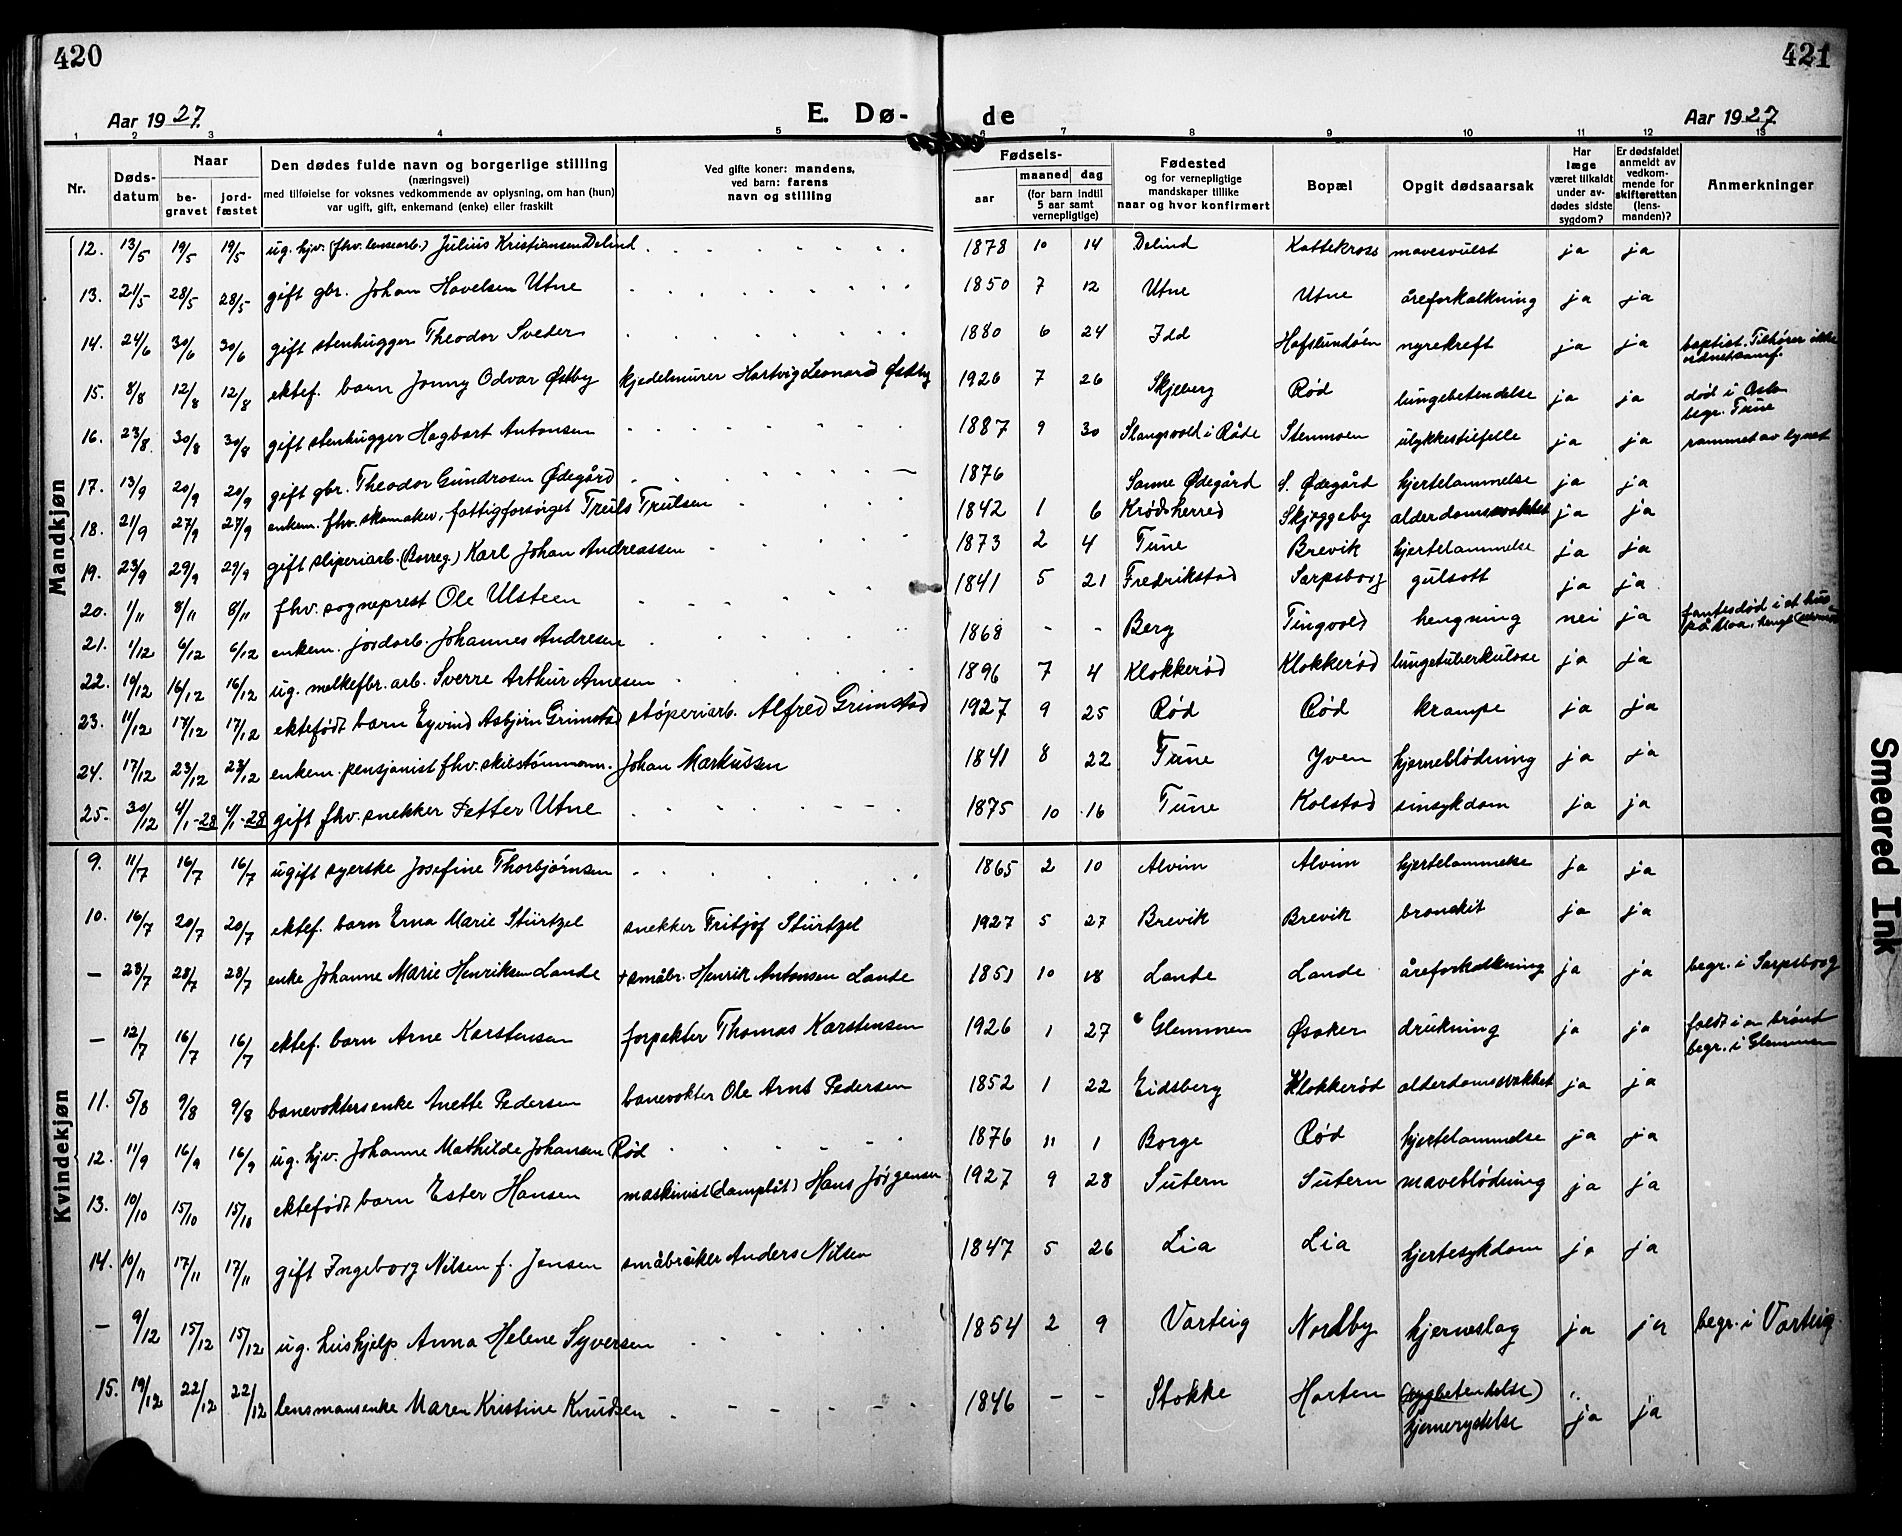 420
421
Aar 1927.
E. Dø-
de
Aar 1927
1 2 3 4 5 6 7 8 9 10 11 12 13
Nr.
Døds-
datum
Naar
be-
gravet
jord-
fæstet
Den dødes fulde navn og borgerlige stilling
(næringsvei)
med tilføielse for voksnes vedkommende av oplysning, om han (hun)
var ugift, gift, enkemand (enke) eller fraskilt
Ved gifte koner: mandens,
ved barn: farens
navn og stilling
Fødsels-
aar
maaned dag
(for barn indtil
5 aar samt
vernepligtige)
Fødested
og for vernepligtige
mandskaper tillike
naar og hvor konfirmert
Bopæl
Opgit dødsaarsak
Har
læge
været tilkaldt
under av-
dødes sidste
sygdom?
Er dødsfaldet
anmeldt av
vedkom-
mende for
skifteretten
(lens-
manden)?
Anmerkninger
Mandkjøn
12. 13/5 19/5 19/5 ug. hjv. (fhv. lensearb.) Julius Kristiansen Delind 1878 10 14 Delind Kattekross mavesvulst ja ja
13. 21/5 28/5 28/5 gift gbr. Johan Havelsen Utne 1850 7 12 Utne Utne åreforkalkning ja ja
14. 24/6 30/6 30/6 gift stenhugger Theodor Sveder 1880 6 24 Idd Hafslundsøen nyrekreft ja ja baptist. Tilhører ikke
ordnet samf.
15. 8/8 12/8 12/8 ektef. barn Jonny Odvar Østby kjedelmurer Hartvig Leonard Østby 1926 7 26 Skjeberg Rød lungebetendelse ja ja død i Oslo
begr. Tune
16. 23/8 30/8 30/8 gift stenhugger Hagbart Antonsen 1887 9 30 Slangsvold i Råde Stenmoen ulykkestilfelle ja ja rammet av lynet
17. 13/9 20/9 20/9 gift gbr. Theodor Gundrosen Ødegård 1876 Sanne Ødegård S. Ødegård hjertelammelse ja ja
18. 21/9 27/9 27/9 enkem. fhv. skomaker, fattigforsørget Truls Trulsen 1842 1 6 Krødsherred Skjøggeby alderdomssvakhet ja ja
19. 23/9 29/9 29/9 gift sliperiarb. (Borreg.) Karl Johan Andreassen 1873 2 4 Tune Brevik hjertelammelse ja ja
20. 1/11 8/11 8/11 fhv. sogneprest Ole Ulsteen 1841 5 21 Fredrikstad Sarpsborg gulsott ja ja
21. 1/12 6/12 6/12 enkem. jordarb. Johannes Andresen 1868 - - Berg Tingvold hengning nei ja fantes død i et hus
på Moa, hengt
22. 10/12 16/12 16/12 ug. melkefbr. arb. Sverre Arthur Arnesen 1896 7 4 Klokkerød Klokkerød lungetuberkulose ja ja
23. 11/12 17/12 17/12 ektefødt barn Eyvind Asbjørn Grimstad støperiarb. Alfred Grimstad 1927 9 25 Rød Rød krampe ja ja
24. 17/12 23/12 23/12 enkem. pensjonist fhv. skibstømmerm. Johan Markussen 1841 8 22 Tune Yven hjerneblødning ja ja
25. 30/12 4/1-28 4/1-28 gift fhv. snekker Petter Utne 1875 10 16 Tune Kolstad sinsykdom ja ja
Kvindekjøn
9. 11/7 16/7 16/7 ugift syerske Josefine Thorbjørnsen 1865 2 10 Alvim Alvim hjertelammelse ja ja
10. 16/7 20/7 20/7 ektef. barn Erna Marie Stürtzel snekker Fritjof Stürtzel 1927 5 27 Brevik Brevik bronkit ja ja
- 23/7 28/7 28/7 enke Johanne Marie Henriksen Lande + småbr. Henrik Antonsen Lande 1851 10 18 Lande Lande åreforkalkning ja ja begr. i Sarpsborg
- 12/7 16/7 16/7 ektef. barn Arne Karstensen forpakter Thomas Karstensen 1926 1 27 Glemmen Øsaker drukning ja ja faldt i en brønd
begr. i Glemmen
11. 5/8 9/8 9/8 banevokters enke Anette Pedersen banevokter Ole Arnt Pedersen 1852 1 22 Eidsberg Klokkerød alderdomssvakhet ja ja
12. 11/9 16/9 16/9 ug. hjv. Johanne Mathilde Johansen Rød 1876 11 1 Borge Rød hjertelammelse ja ja
13. 10/10 15/10 15/10 ektefødt barn Ester Hansen maskinist (dampbåt) Hans Jørgensen 1927 9 28 Sutern Sutern maveblødning ja ja
14. 10/11 17/11 17/11 gift Ingeborg Nilsen f. Jensen småbruker Anders Nilsen 1847 5 26 Lia Lia hjertesykdom ja ja
- 9/12 15/12 15/12 ug. hushjelp Anna Helene Syversen 1854 2 9 Varteig Nordby hjerneslag ja ja begr. i Varteig
15. 19/12 22/12 22/12 lensmansenke Maren Kristine Knudsen 1846 - - Stokke Horten (rygbetendelse)
hjernerystelse ja ja
Smeared Ink